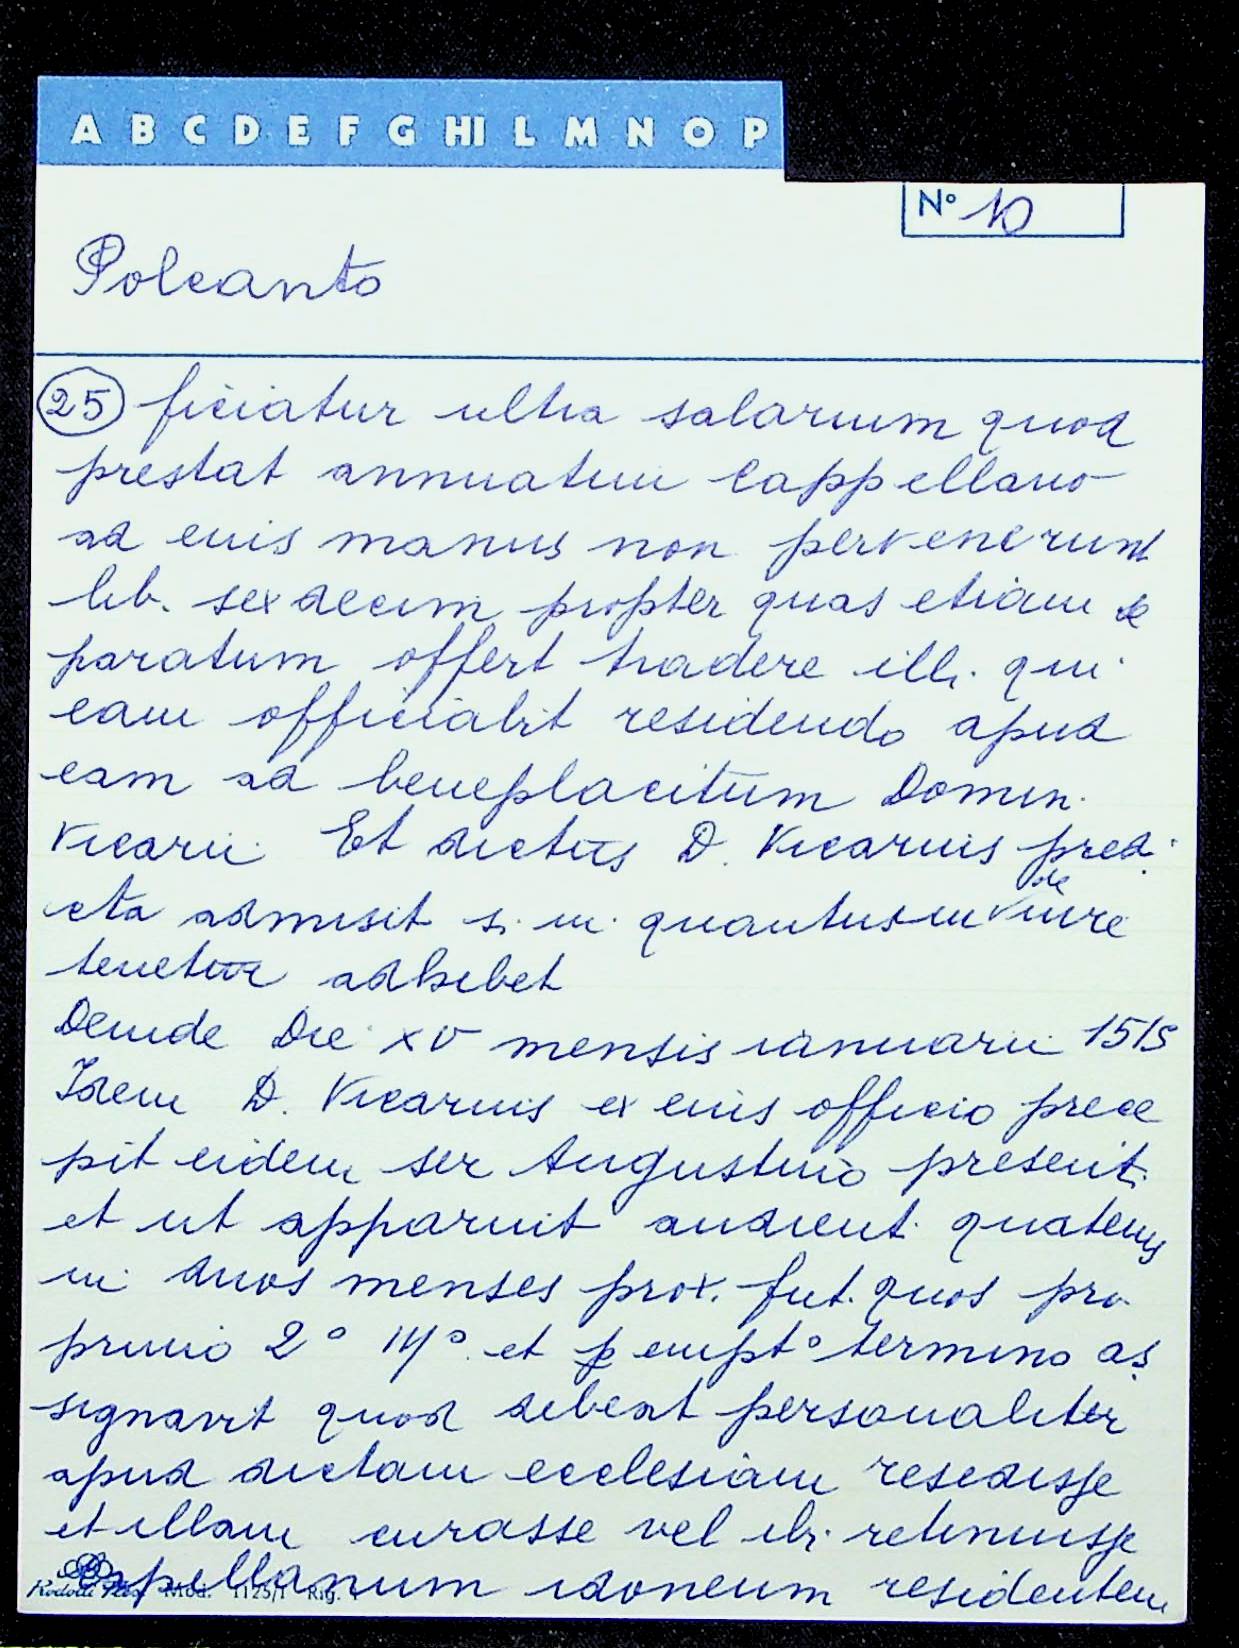 A B C D E F G HI L M N O P
N° 10
Polcanto
25 ficiatur ultra salarium quod
prestat annuatim Cappellano
ad eius manus non pervenerunt
lib. sexdecim propter quas etiam se
paratum offert tradere illi. qui
eam officiabit residendo apud
eam ad beneplacitum Domin.
Vicarii. Et dictus D. Vicarius pred.
cta admisit s. in quantum de iure
tenetur adhibet
Deinde Die XV mensis ianuarii 1515
Idem D. Vicarius ex eius officio prece
pit eidem ser Augustino present.
et ut apparuit audient. quatenus
in duos menses prox. fut. quos pro
primo 2° et perempt° termino as
signavit quod debeat personaliter
apud dictam ecclesiam resedisse
et illam curasse vel ibi. retinuisse
Cappellanum idoneum residentem
Mod. 1125/1 Rig.